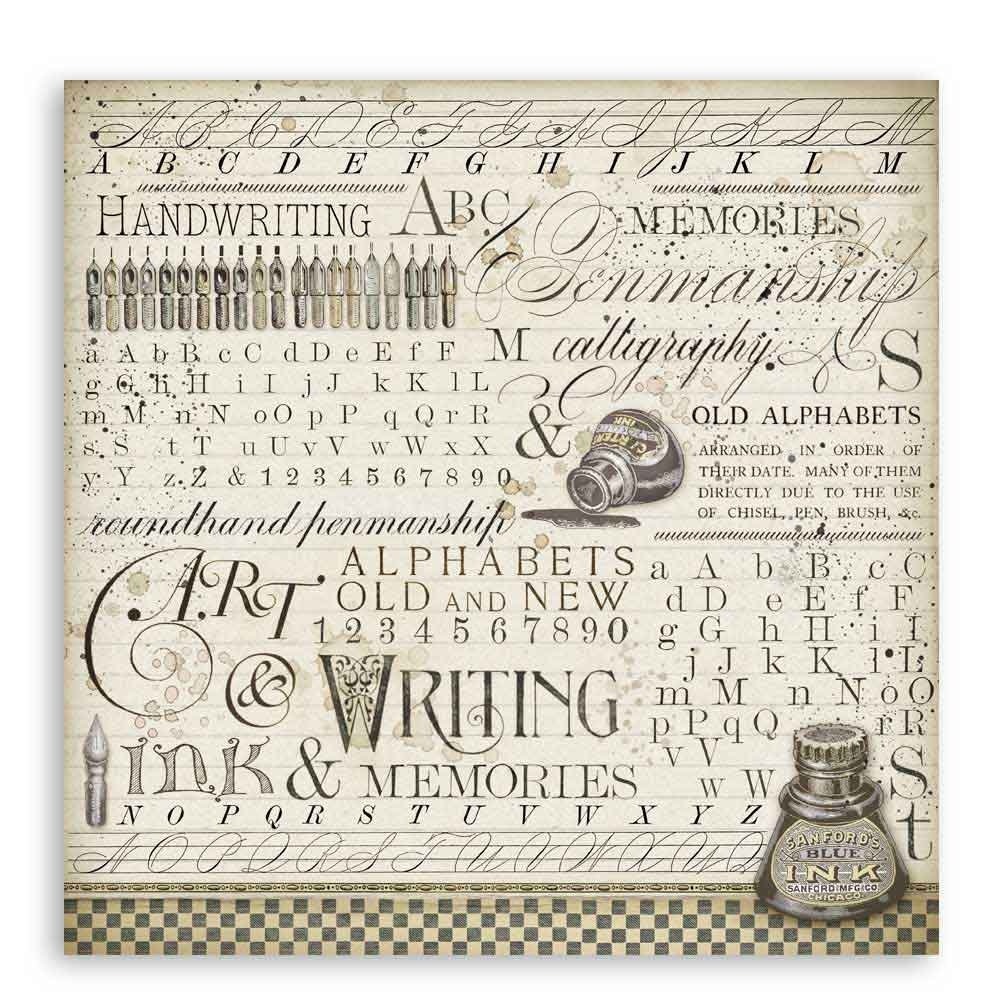 A B C D E F G H I J K L M
A B C D E F G H I J K L M
HANDWRITING ABC
MEMORIES
Penmanship
a A b B c C d D e E f F
g G h H i I j J k K l L
m M n N o O p P q Q r R
s S t T u U v V w W x X
y Y z Z & 1 2 3 4 5 6 7 8 9 0
M calligraphy S
&
INK
OLD ALPHABETS
ARRANGED IN ORDER OF
THEIR DATE. MANY OF THEM
DIRECTLY DUE TO THE USE
OF CHISEL, PEN, BRUSH, &c.
roundhand penmanship
ART
ALPHABETS
OLD AND NEW
1 2 3 4 5 6 7 8 9 0
& WRITING
a A b B c C
d D e E f F
g G h H i I
j J k K l L
m M n N o O
p P q Q r R
v V S
w W t
INK & MEMORIES
N O P Q R S T U V W X Y Z
N O P Q R S T U V W X
SANFORD'S
BLUE
INK
SANFORD MFG. CO.
CHICAGO